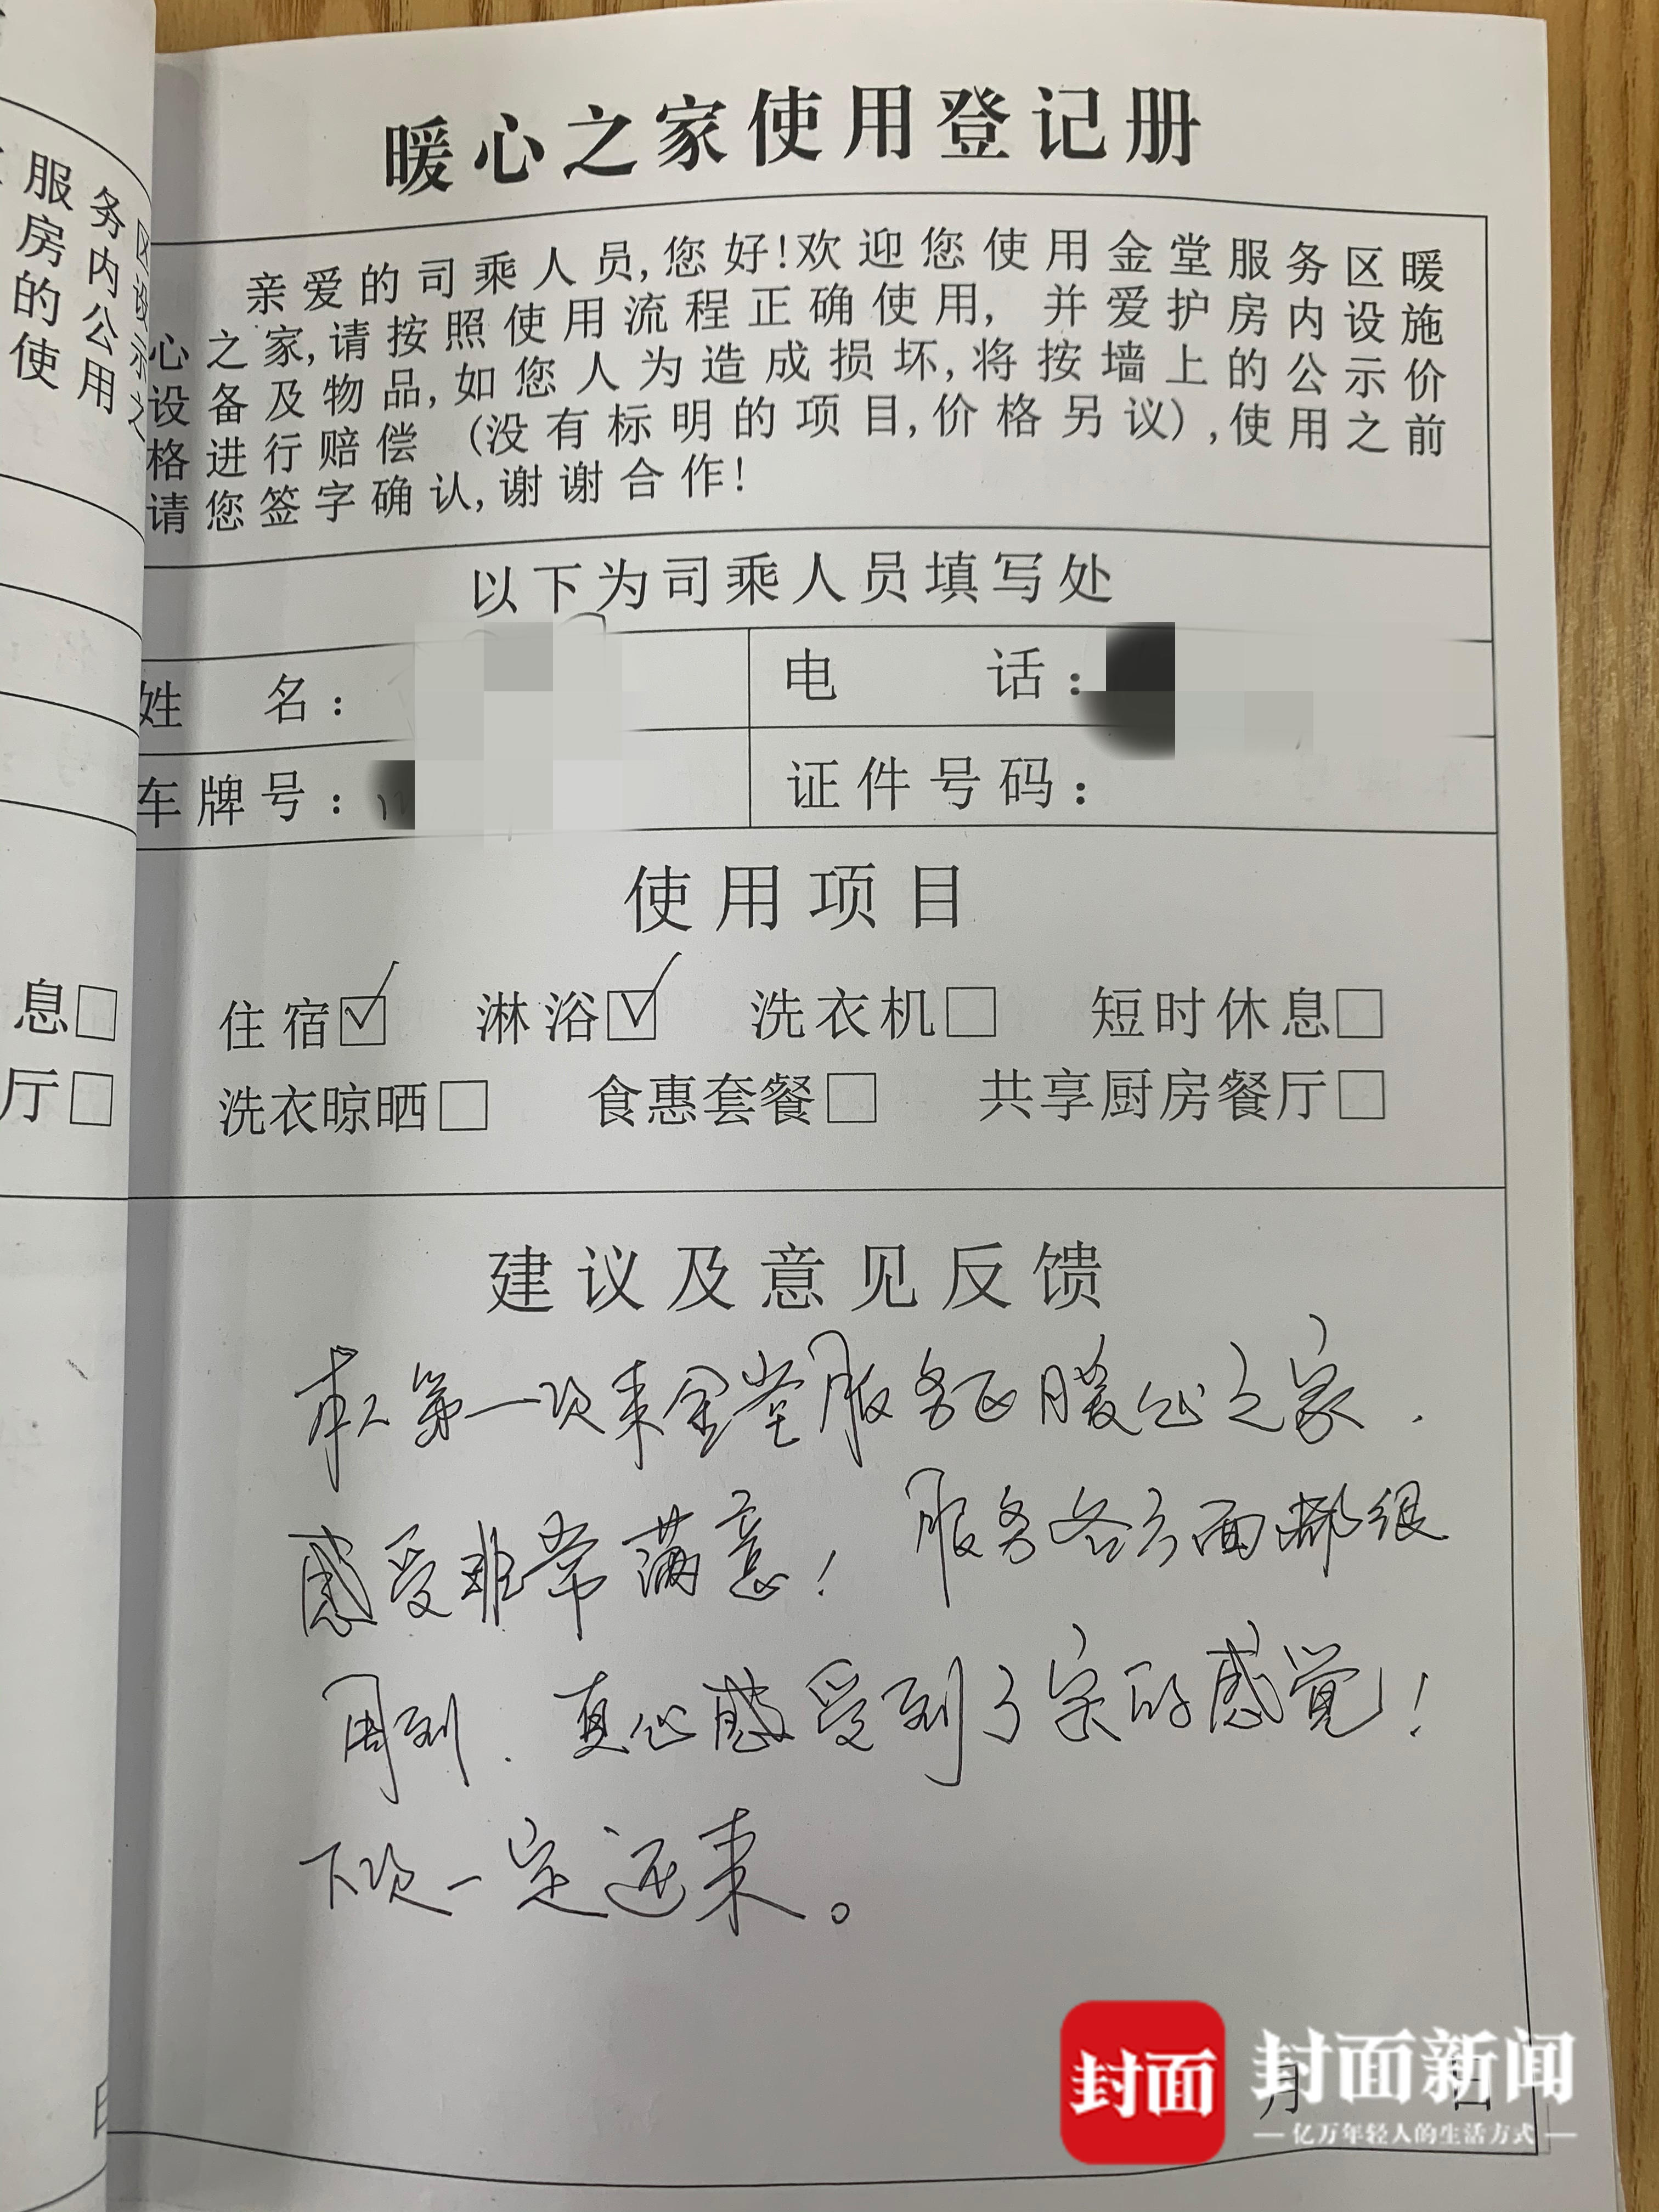 暖心之家使用登记册
亲爱的司乘人员,您好!欢迎您使用金堂服务区暖
心之家,请按照使用流程正确使用,并爱护房内设施
设备及物品,如您人为造成损坏,将按墙上的公示价
格进行赔偿(没有标明的项目,价格另议),使用之前
请您签字确认,谢谢合作!
以下为司乘人员填写处
姓名: 电话:
车牌号: 证件号码:
使用项目
住宿☑ 淋浴☑ 洗衣机□ 短时休息□
洗衣晾晒□ 食惠套餐□ 共享厨房餐厅□
建议及意见反馈
本人第一次来金堂服务区暖心之家.
感受非常满意! 服务各方面都很
周到. 真心感受到了家的感觉!
下次一定还来。
月 日
服务
房内公用
的使
息□
厅□
封面
封面新闻
亿万年轻人的生活方式